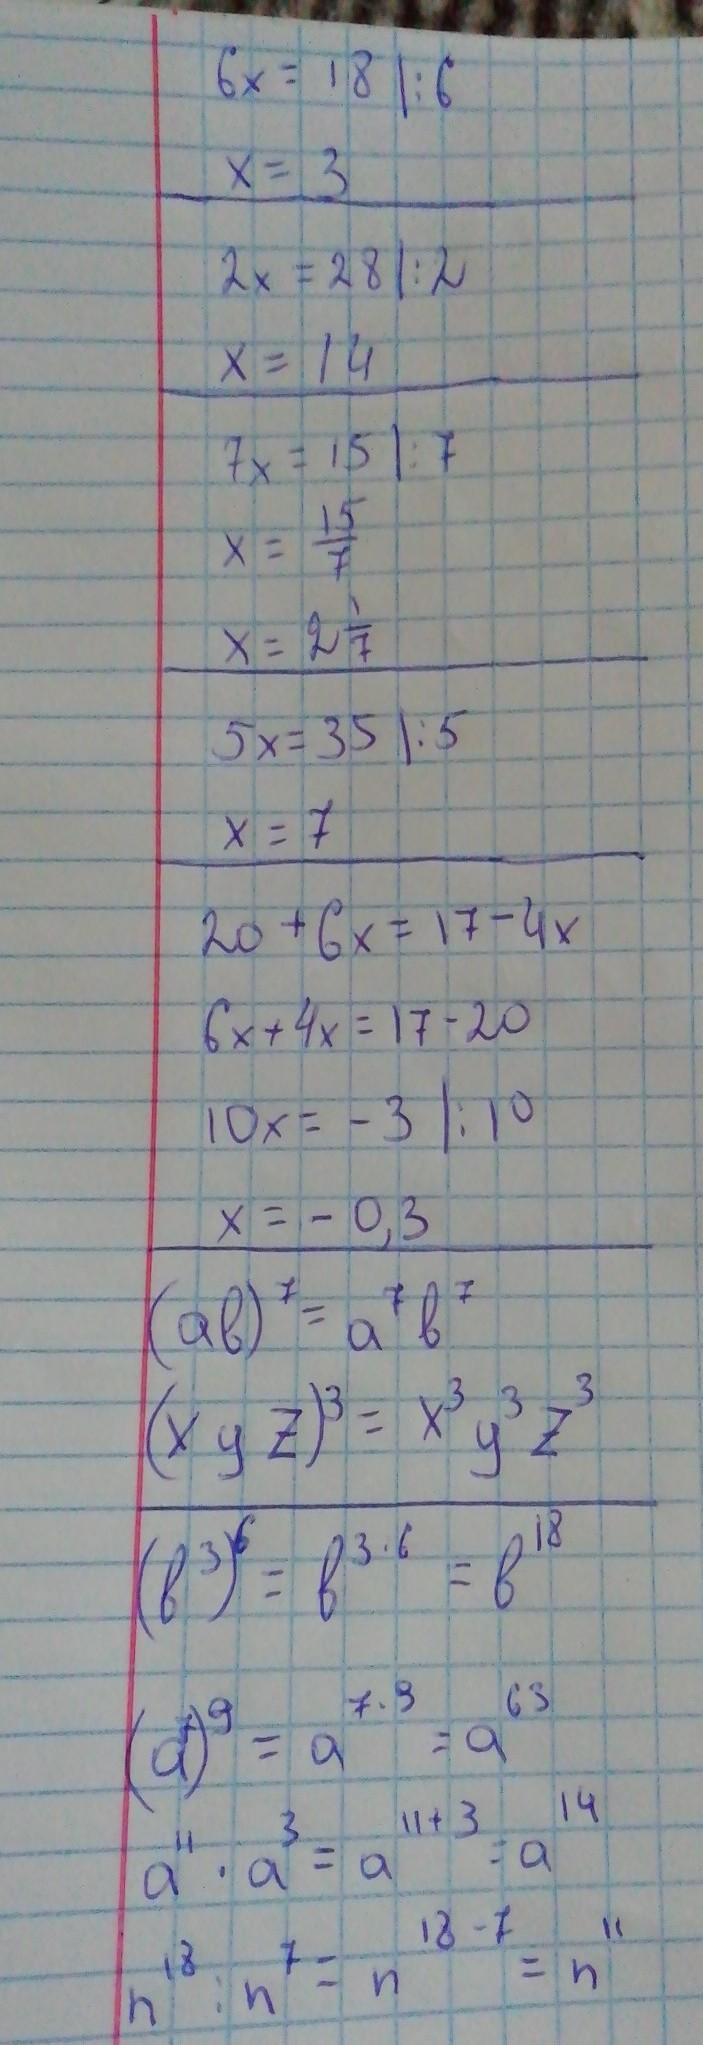 6x = 18 |:6
x = 3
2x = 28 |:2
x = 14
7x = 15 |:7
x = 15/7
x = 2 1/7
5x = 35 |:5
x = 7
20 + 6x = 17 - 4x
6x + 4x = 17 - 20
10x = -3 |:10
x = -0,3
(ab)⁷ = a⁷b⁷
(xyz)³ = x³y³z³
(b³)⁶ = b³·⁶ = b¹⁸
(a⁷)⁹ = a⁷·⁹ = a⁶³
a¹¹ · a³ = a¹¹⁺³ = a¹⁴
n¹⁸ : n⁷ = n¹⁸⁻⁷ = n¹¹